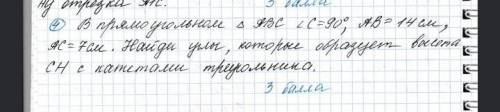 ну отрезка АС. 3 балла
④ В прямоугольном △ АВС ∠С=90°, АВ=14см,
АС=7см. Найди улы, которые образует высота
СН с катетами треугольника.
3 балла